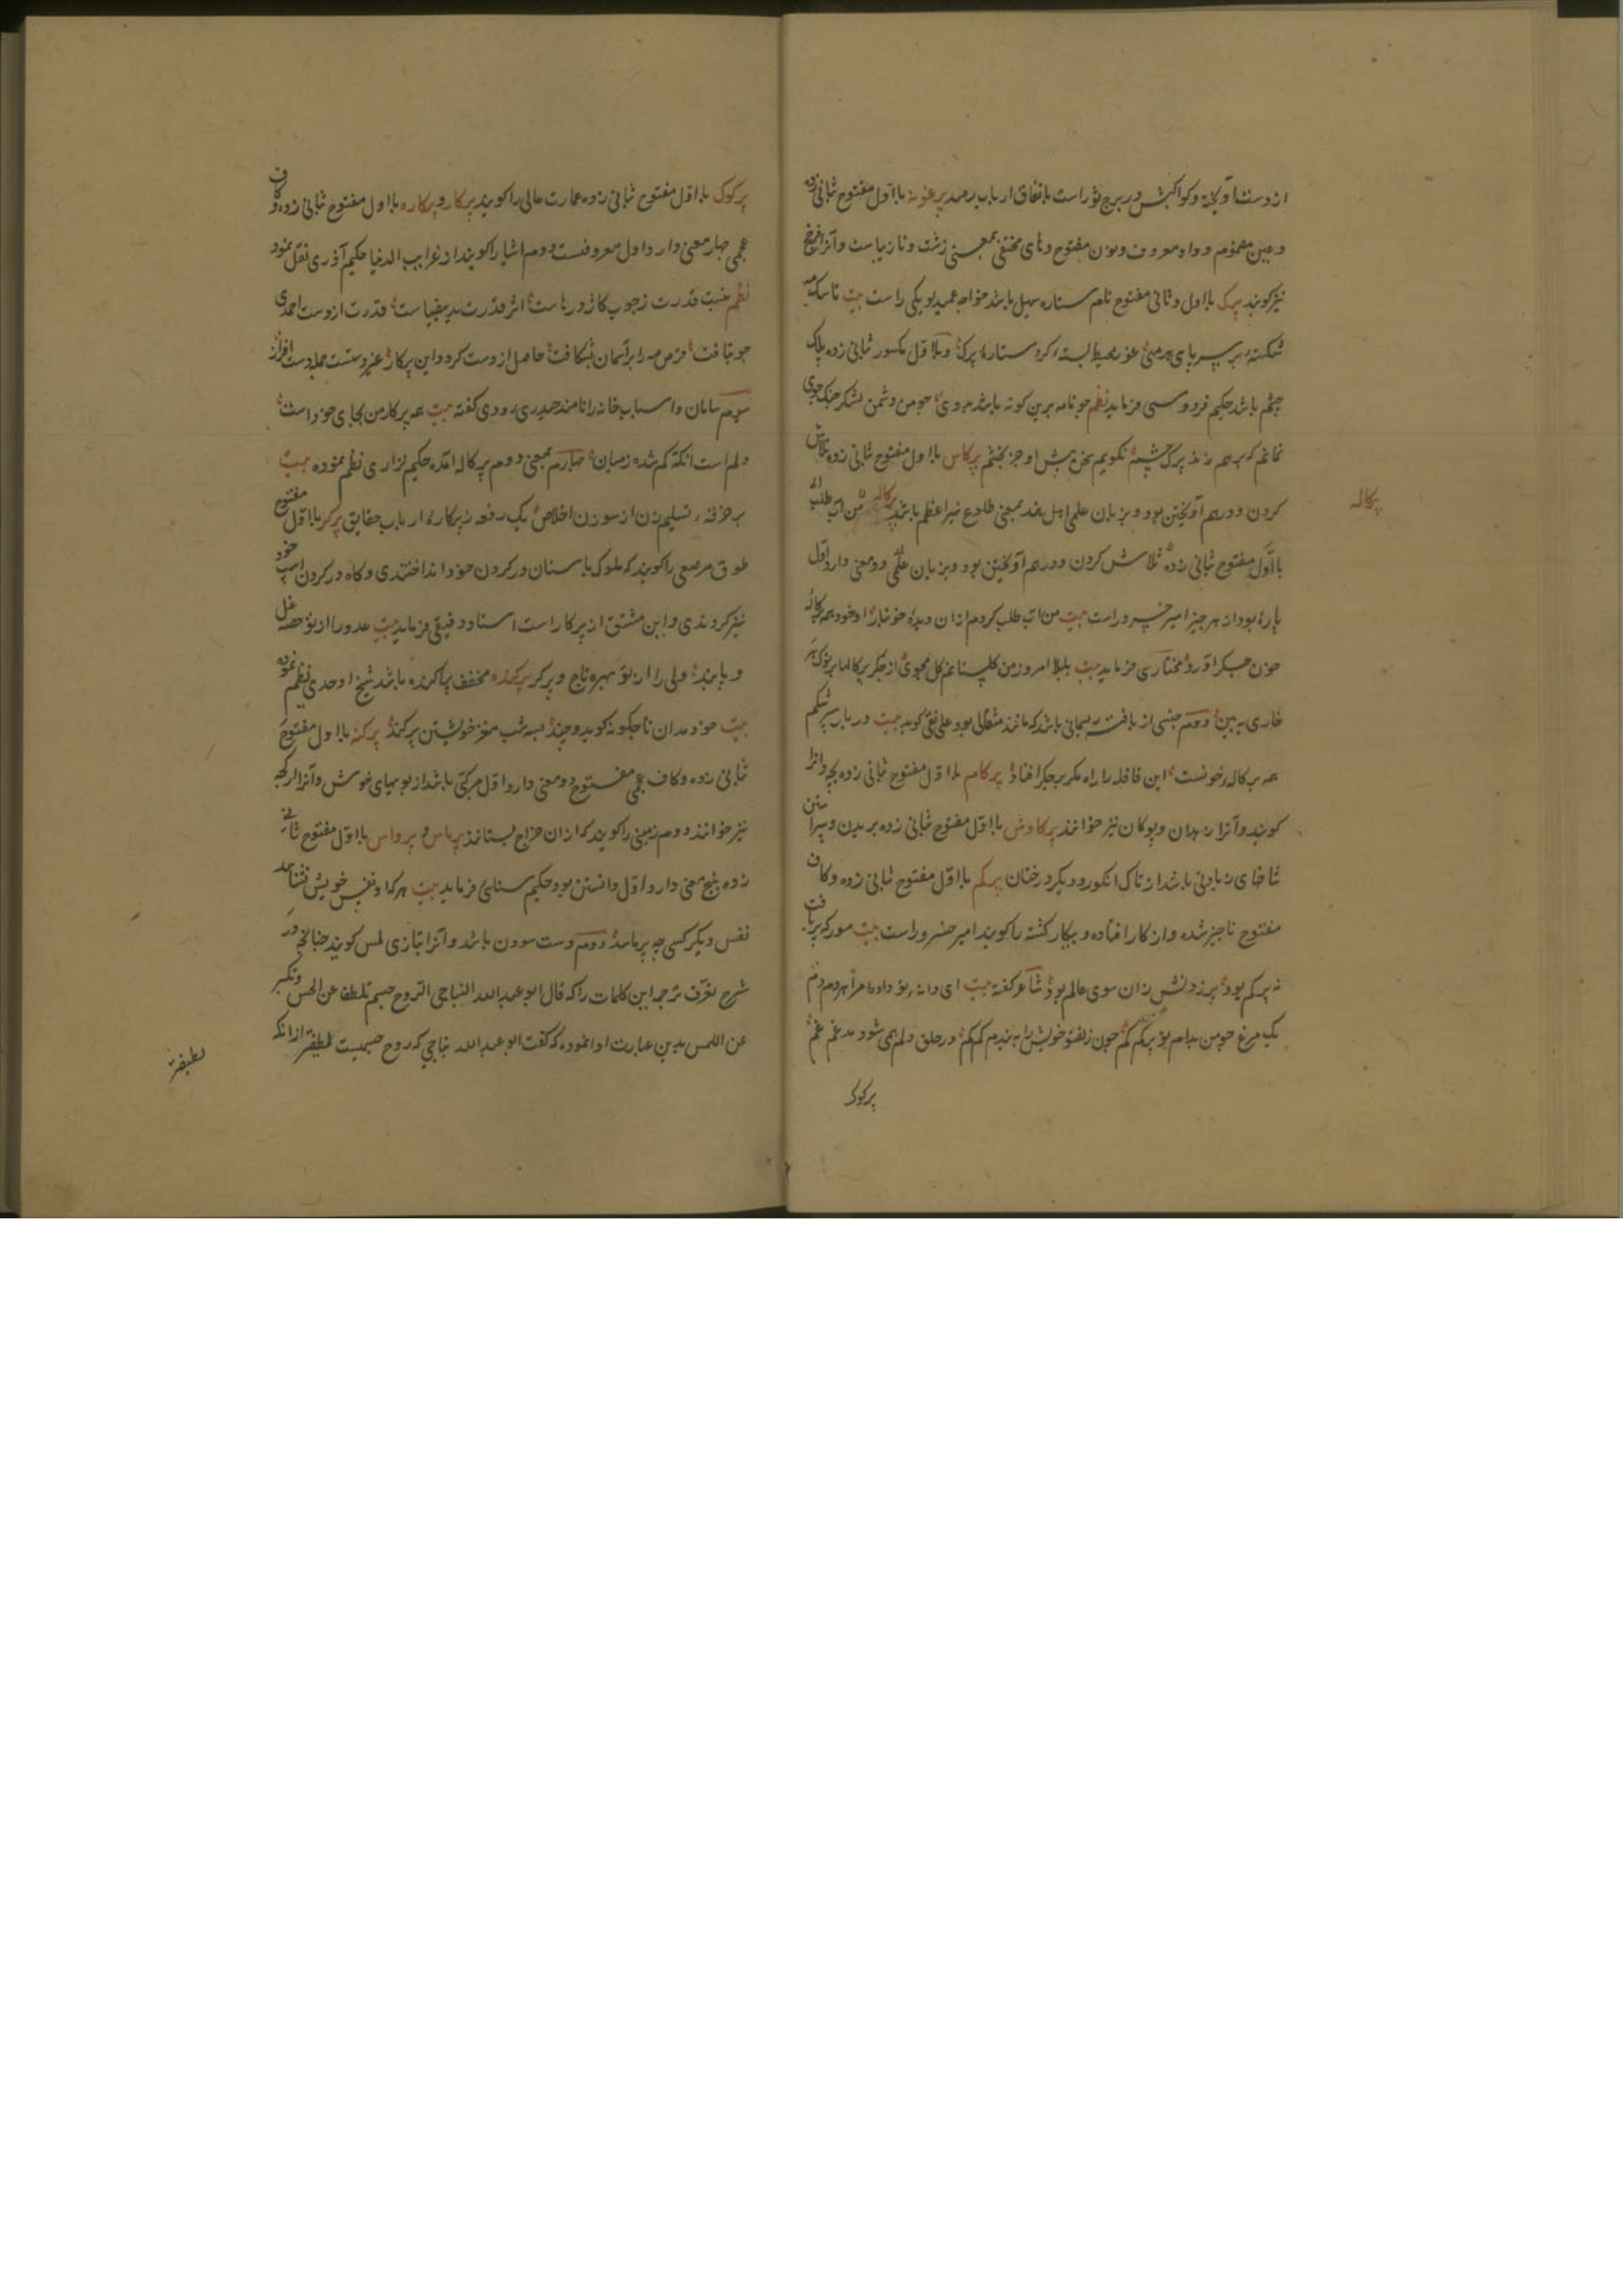 از دست آویخته و کواکبش در برج ثور است باتفاق ارباب رصد پرغونه با اول مفتوح ثانی زده
و غین مضموم و واو معروف و نون مفتوح و های مختفی بمعنی زشت و نازیباست و آنرا فرخج
نیز کویند پرک با اول و ثانی مفتوح نام ستاره سهیل باشد خواجه عمید لویکی راست بیت تا سک مه
شکسته بر سر پای غور محیط بسته کرد ستارهٔ پرک و با اول مکسور ثانی زده پلک
چشم باشد حکیم فردوسی فرماید نظم چو نامه برین کونه باشد بروی چو من دشمن لشکر جنک جوی
نمانم که برهم زند پرک چشم نکویم سخن پیش او جز بخشم پرکاس با اول مفتوح ثانی زده تلاش
کردن و درهم آویختن بود و بزبان علمی اهل هند بمعنی طلوع نیر اعظم باشد پرکاله
پرکاله
با اول مفتوح ثانی زده تلاش کردن و درهم آویختن بود و بزبان علمی دو معنی دارد اول
پارهٔ بود از هر چیز امیر خسرو راست بیت من آب طلب کردم از ان دیدهٔ خونبار او خود همه پرکاله
خون جکر آورد مختاری فرماید بیت بلبلا امروز من کلستانم کل مجوی از جکر پرکالها بر نوک هر
خاری ببین دوم جنسی از بافته ریسمانی باشد که مانند مثقالی بود علی نقی کوید بیت در بار سرشکم
همه پرکاله خونست این قافله را راه مکر بر جکر افتاد پرکام با اول مفتوح ثانی زده بچه دانرا
کویند و آنرا زهدان و پوکان نیز خوانند پرکاوش با اول مفتوح ثانی زده بریدن و پیراستن
شاخهای زیادتی باشد از تاک انکور و دیکر درختان پرکم با اول مفتوح ثانی زده و کاف
مفتوح ناچیز شده و از کار افتاده و بیکار کشته را کویند امیر خسرو راست بیت مور که پر یافت
نه پرکم بود پر زدنش زان سوی عالم بود شاعر کفته بیت ای دانه تو داده مرا هر دم دم
یک مرغ چو من بدام تو پرکم کم چون زلف تو خویش را به بندم کم کم در حلق دلم همی شود مدغم غم
پرکوک
پرکوک با اول مفتوح ثانی زده عمارت عالی را کویند پرکار و پرکاره با اول مفتوح ثانی زده و کاف
عجمی چهار معنی دارد اول معروفست دوم اشیا را کویند از غرایب الدنیا حکیم آذری نقل نمود
نظم قدرت ز چوب کاژدرهاست اثر قدرت ید بیضاست قدرت از دست احمدی
چو بتافت قرص مه را بر آسمان بشکافت حاصل از دست کرد و این پرکار
سوم سامان و اسباب خانه را نامند حیدری رودی کفته بیت همه پرکار من بجای خود است
دلم است آنکه کم شده ز میان چهارم بمعنی دوم پرکاله آمده حکیم نزاری نظم نموده بیت
بر خرقهٔ تسلیم زن از سوزن اخلاص یک رقعه ز پرکارهٔ ارباب حقایق پرکر با اول مفتوح
طوق مرصعی را کویند که ملوک باستان در کردن خود انداختندی و کاه در کردن اسپ خود
نیز کردندی و این مشتق از پرکار است استاد دقیقی فرماید بیت عدو را از تو حصه غل
و پابند ولی را از تو بهره تاج و پرکر پرکنده مخفف پراکنده باشد شیخ اوحدی نظم نموده
بیت خود مدان تا چکونه کوید و چند بسه شب مغز خویشتن پرکند پرکنه با اول مفتوح
ثانی زده و کاف عجمی مفتوح دو معنی دارد اول مرکبی باشد از بویهای خوش و آنرا ارکجه
نیز خوانند دوم زمینی را کویند که ازان خراج بستانند پرماس و پرواس با اول مفتوح ثانی
زده پنج معنی دارد اول دانستن بود حکیم سنائی فرماید بیت هر که او نفس خویش نشناسد
نفس دیکر کسی چه پرماسد دوم دست سودن باشد و آنرا بتازی لمس کویند چنانچه در
شرح تعرف ترجمه این کلمات را که قال ابو عبد الله النباجی الروح جسم تلطف عن الحس و تکبر
عن اللمس بدین عبارت ادا نموده که کفت ابو عبد الله نباجی که روح جسمیست لطیفتر ازانکه
لطیفتر